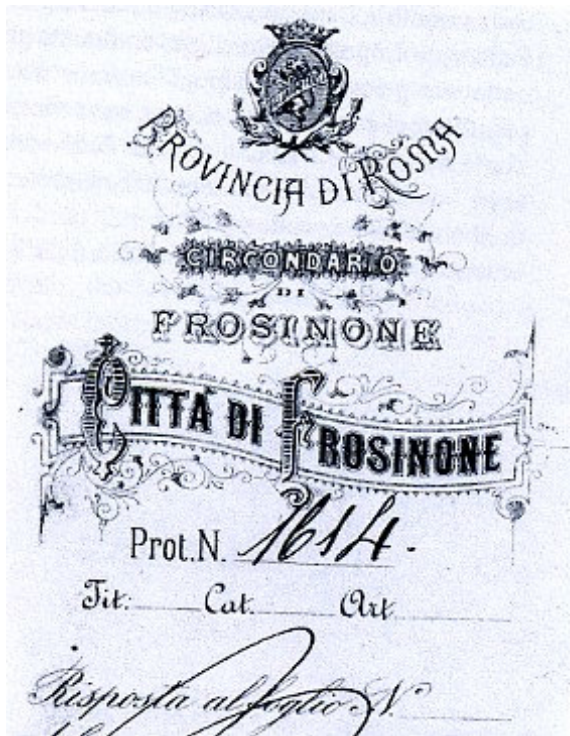 PROVINCIA DI ROMA
CIRCONDARIO
DI
FROSINONE
CITTÀ DI FROSINONE
Prot. N. 1614.
Tit. Cat. Art.
Risposta al foglio N°